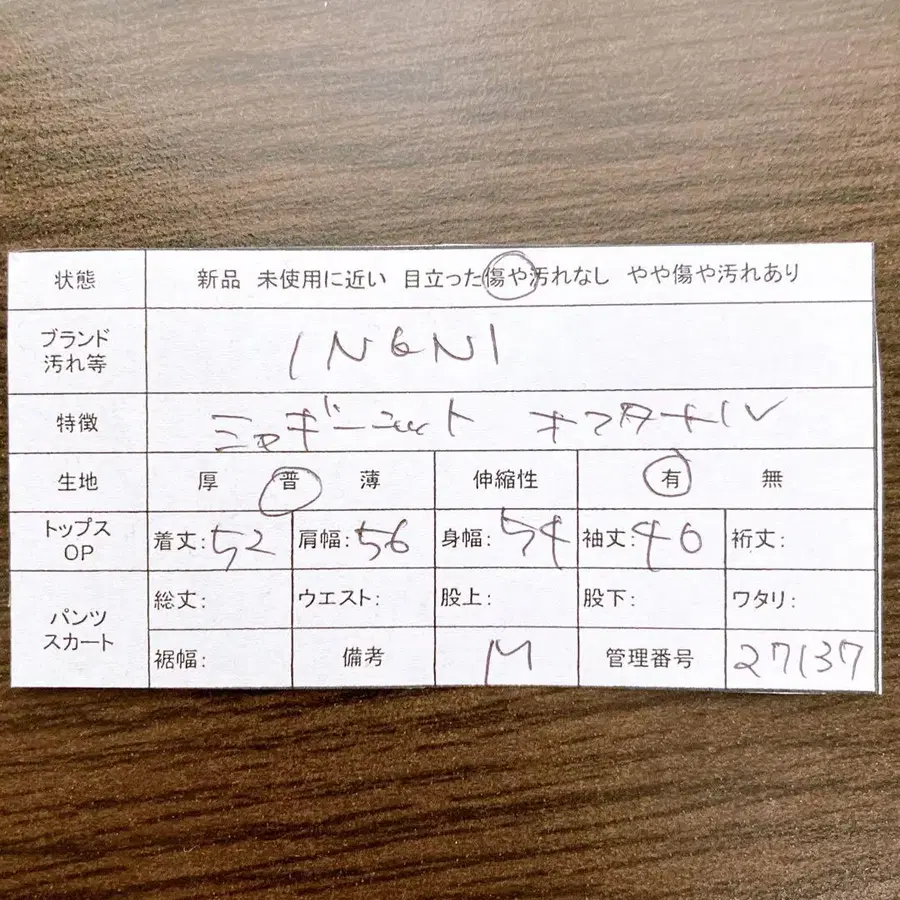 状態 新品 未使用に近い 目立った傷や汚れなし やや傷や汚れあり
ブランド
汚れ等
INGNI
特徴 シャギーニット オフタートル
生地 厚 普 薄 伸縮性 有 無
トップス
OP
着丈:52 肩幅:56 身幅:54 袖丈:40 裄丈:
パンツ
スカート
総丈: ウエスト: 股上: 股下: ワタリ:
裾幅: 備考 M 管理番号 27137